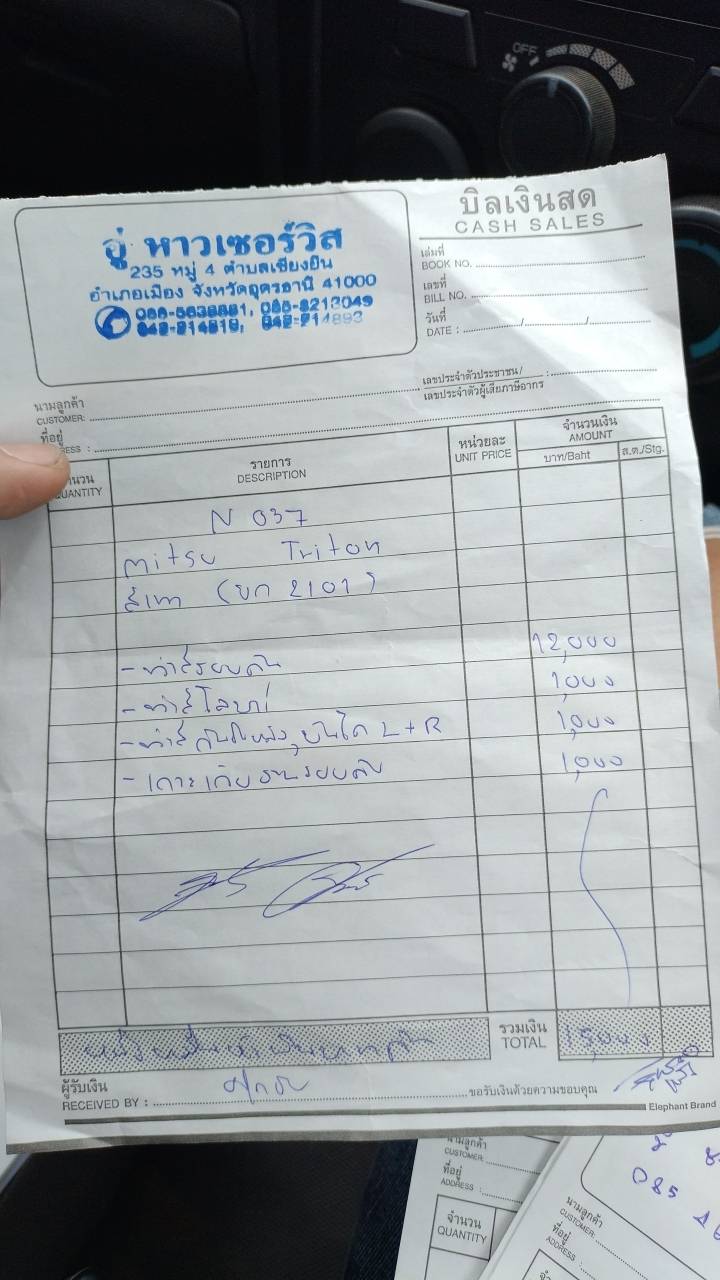 อู่ หาวเซอร์วิส
235 หมู่ 4 ตำบลเชียงยืน
อำเภอเมือง จังหวัดอุดรธานี 41000
042-214819, 042-214893
บิลเงินสด
CASH SALES
เล่มที่
BOOK NO.
เลขที่
BILL NO.
วันที่
DATE : / /
นามลูกค้า
CUSTOMER:
เลขประจำตัวประชาชน/
เลขประจำตัวผู้เสียภาษีอากร :
ที่อยู่
ESS :
จำนวนเงิน
AMOUNT
นวน
QUANTITY
รายการ
DESCRIPTION
หน่วยละ
UNIT PRICE
บาท/Baht
ส.ต./Stg.
N 037
Mitsu Triton
สีเทา (บก 2101)
- ทำสีรอบคัน 12,000
- ทำสีโลบาร์ 1,000
- ทำสีกันชนหลัง, บันได L+R 1,000
- เคาะเก็บงานรอบคัน 1,000
หนึ่งหมื่นห้าพันบาทถ้วน
รวมเงิน
TOTAL
15,000
ผู้รับเงิน
RECEIVED BY :
ขอรับเงินด้วยความขอบคุณ
Elephant Brand
นามลูกค้า
CUSTOMER:
ที่อยู่
ADDRESS :
จำนวน
QUANTITY
นามลูกค้า
CUSTOMER:
ที่อยู่
ADDRESS :
จำนวน
085
OFF